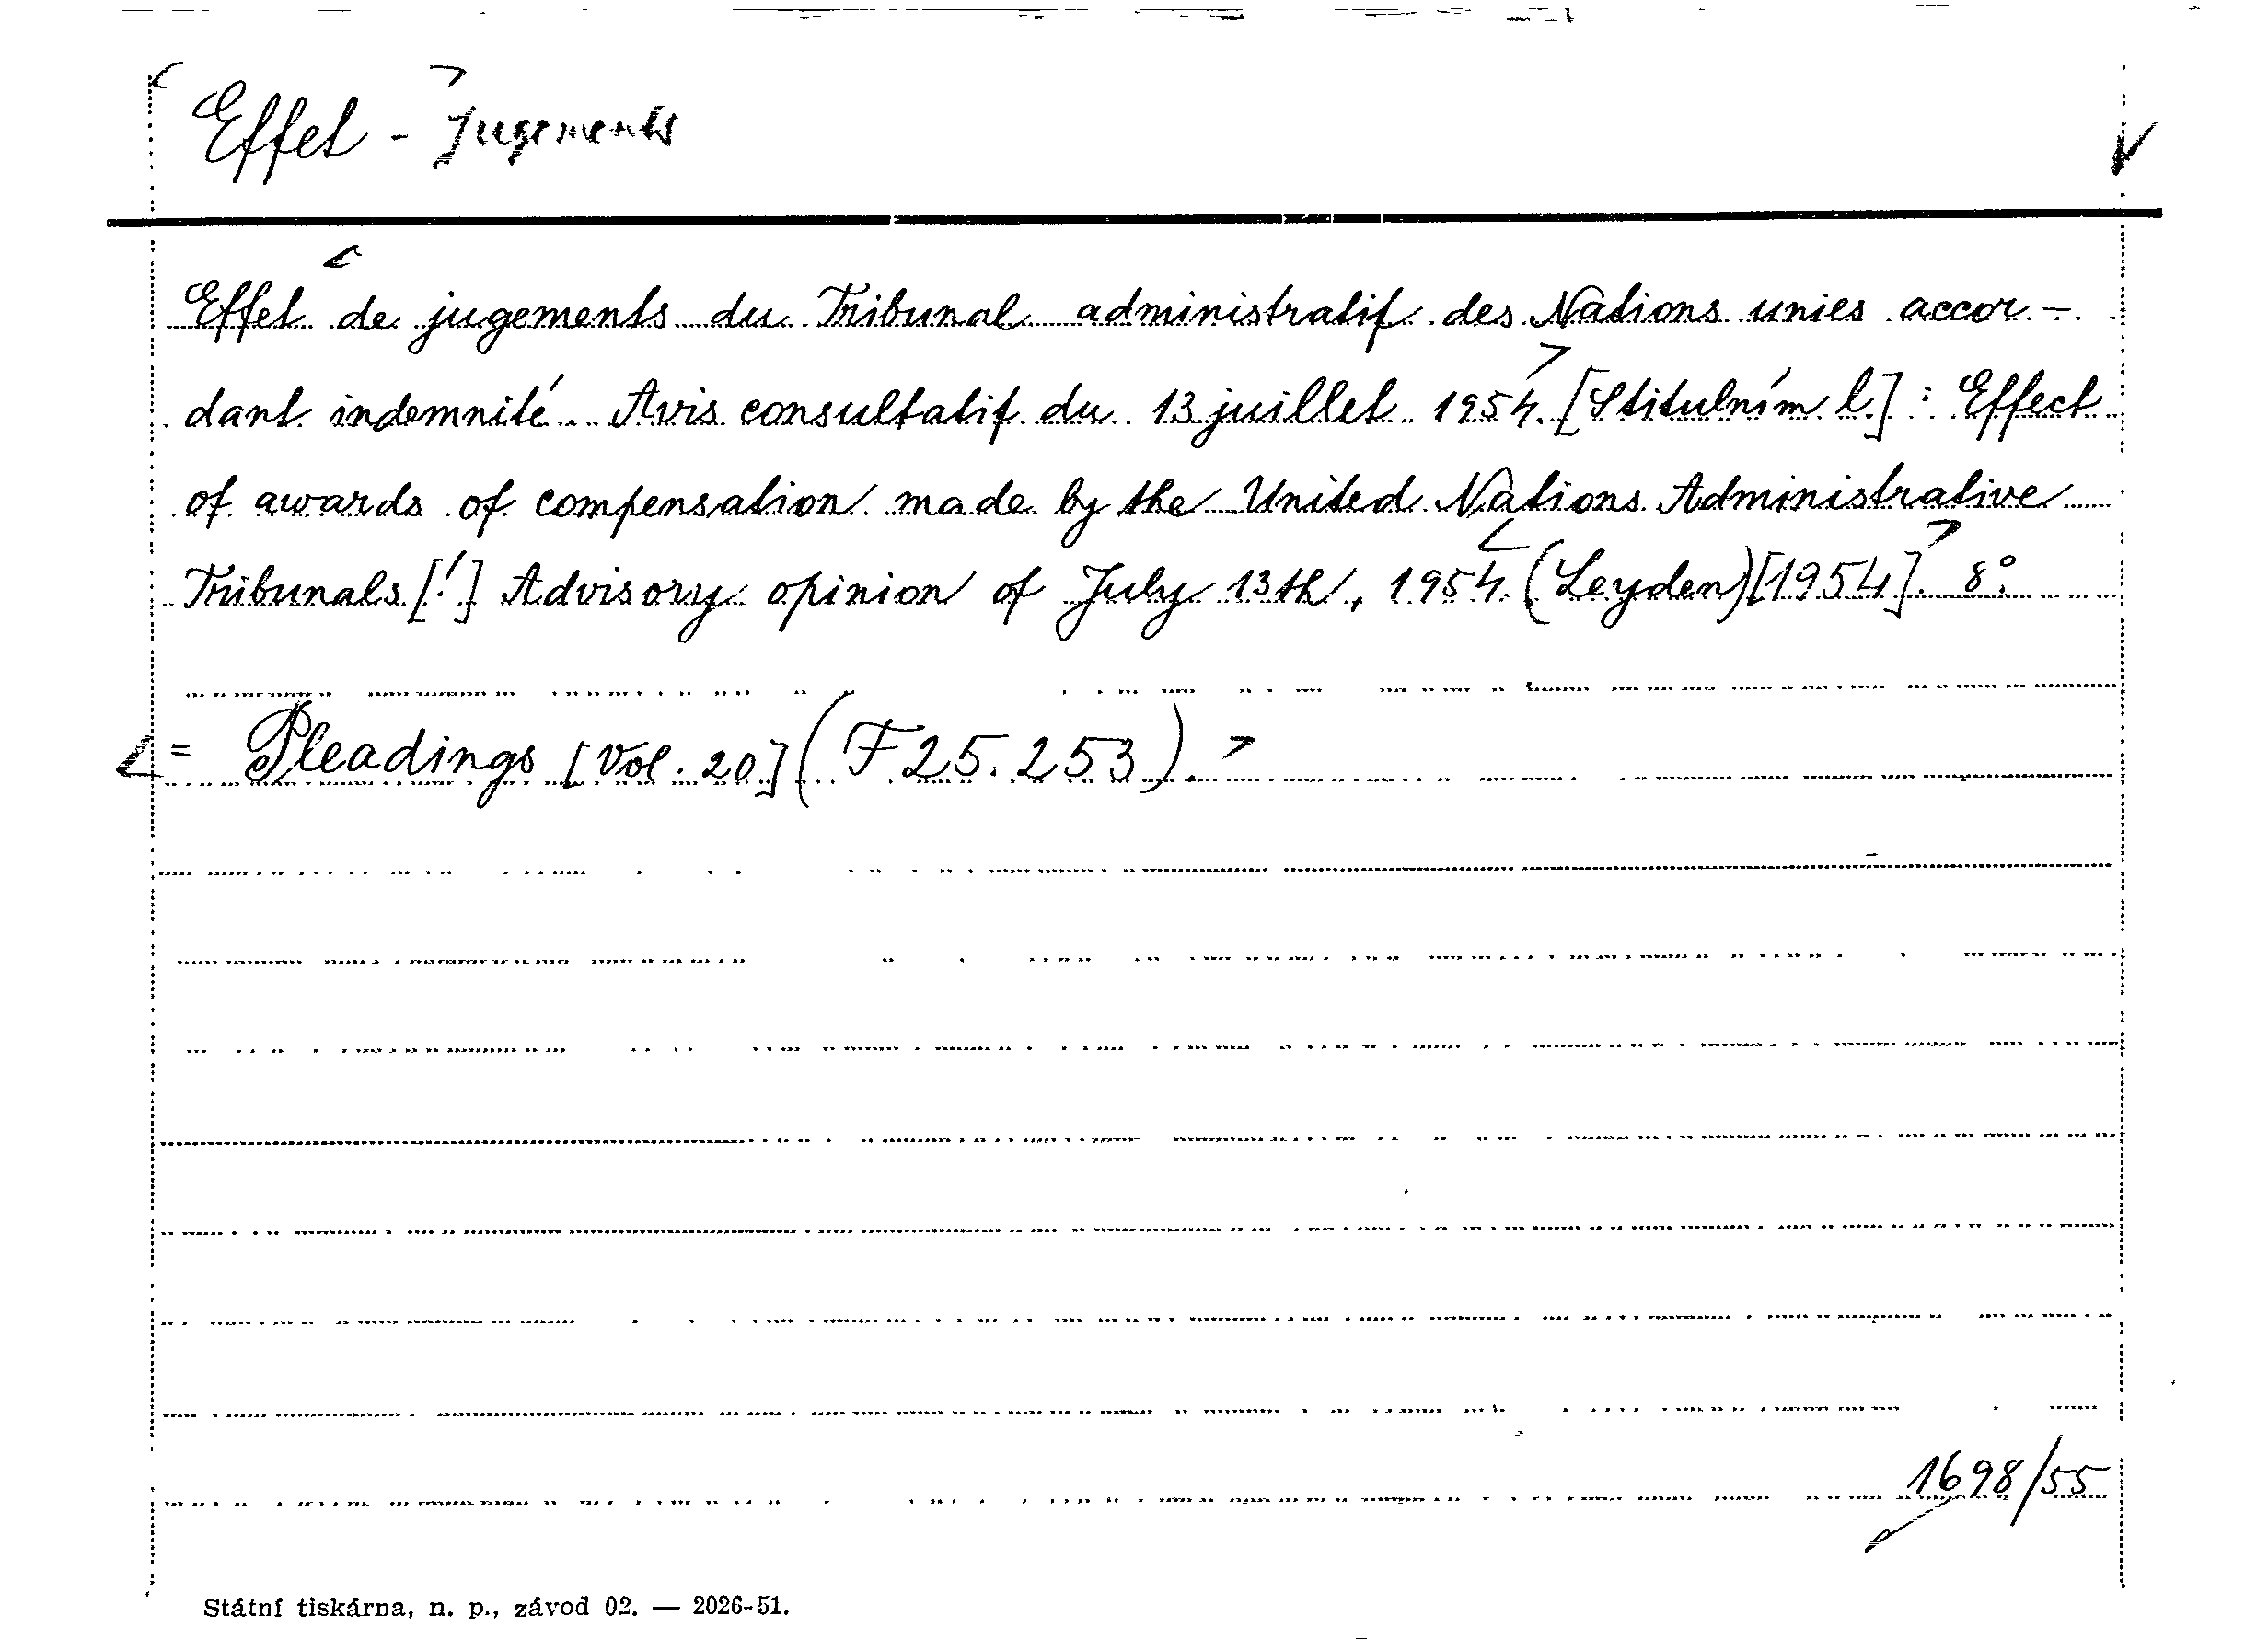 Effet - Jugements
Effet de jugements du Tribunal administratif des Nations unies accor-
dant indemnité. Avis consultatif du 13 juillet 1954. [S titulním l.]: Effect
of awards of compensation made by the United Nations Administrative
Tribunals [!] Advisory opinion of July 13th, 1954. (Leyden) [1954]. 8°.
= Pleadings [Vol. 20] (F 25.253).
1698/55
Státní tiskárna, n. p., závod 02. — 2026-51.